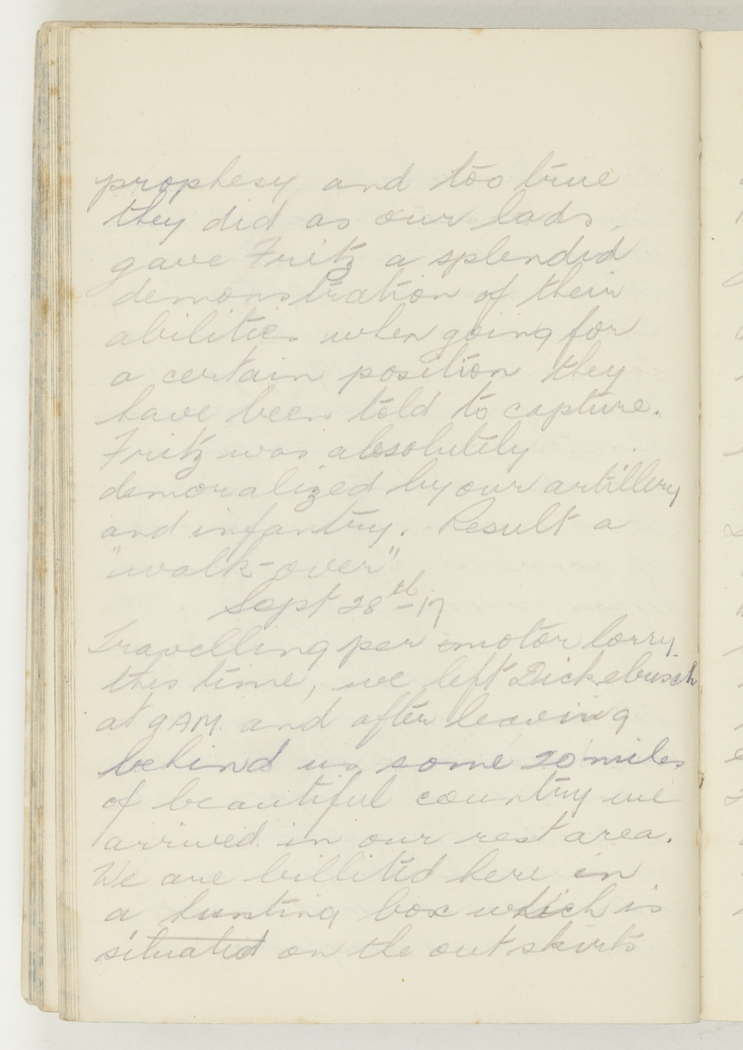 prophesy and too true
they did as our lads
gave Fritz a splendid
demonstration of their
abilities when going for
a certain position they
have been told to capture.
Fritz was absolutely
demoralized by our artillery
and infantry. Result a
"walk-over"
Sept 28th-17
Travelling per motor lorry
this time, we left Dickebusch
at 9AM and after leaving
behind us some 20 miles
of beautiful country we
arrived in our rest area.
We are billited here in
a hunting box which is
situated on the outskirts